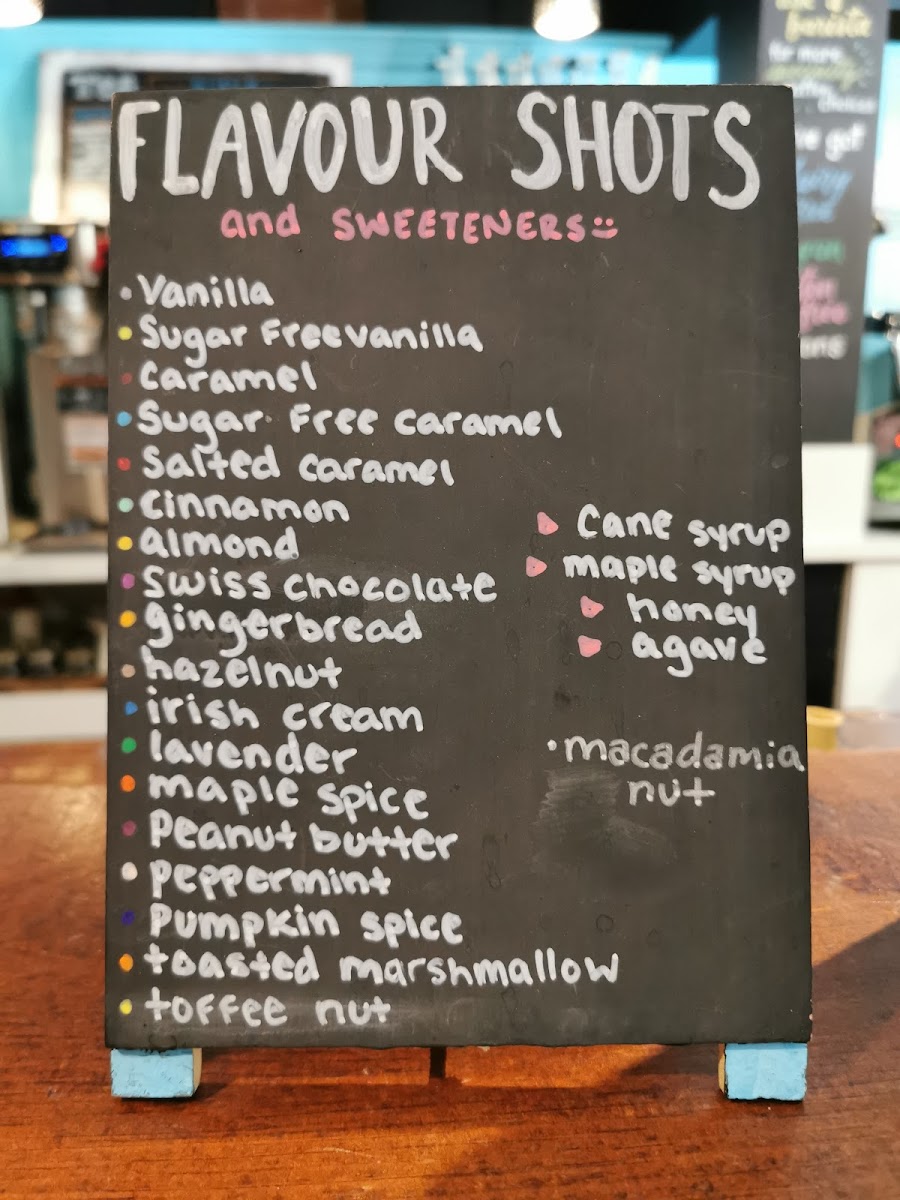 FLAVOUR SHOTS
and SWEETENERS
• Vanilla
• Sugar Free vanilla
• Caramel
• Sugar Free caramel
• Salted caramel
• cinnamon
• almond
• Swiss chocolate
• gingerbread
• hazelnut
• irish cream
• lavender
• maple spice
• Peanut butter
• peppermint
• Pumpkin spice
• toasted marshmallow
• toffee nut
▸ Cane syrup
▸ maple syrup
▸ honey
▸ agave
• macadamia
nut
barista
for more
got